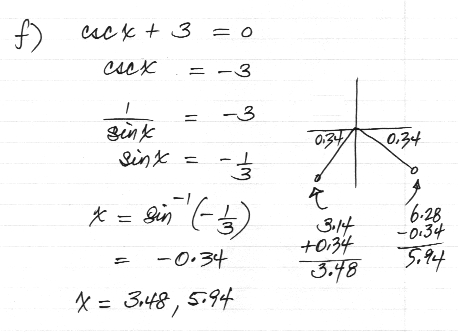 f) cscx + 3 = 0
cscx = -3
1/sinx = -3
sinx = -1/3
x = sin⁻¹(-1/3)
= -0.34
x = 3.48, 5.94
0.34 0.34
3.14
+0.34
3.48
6.28
-0.34
5.94